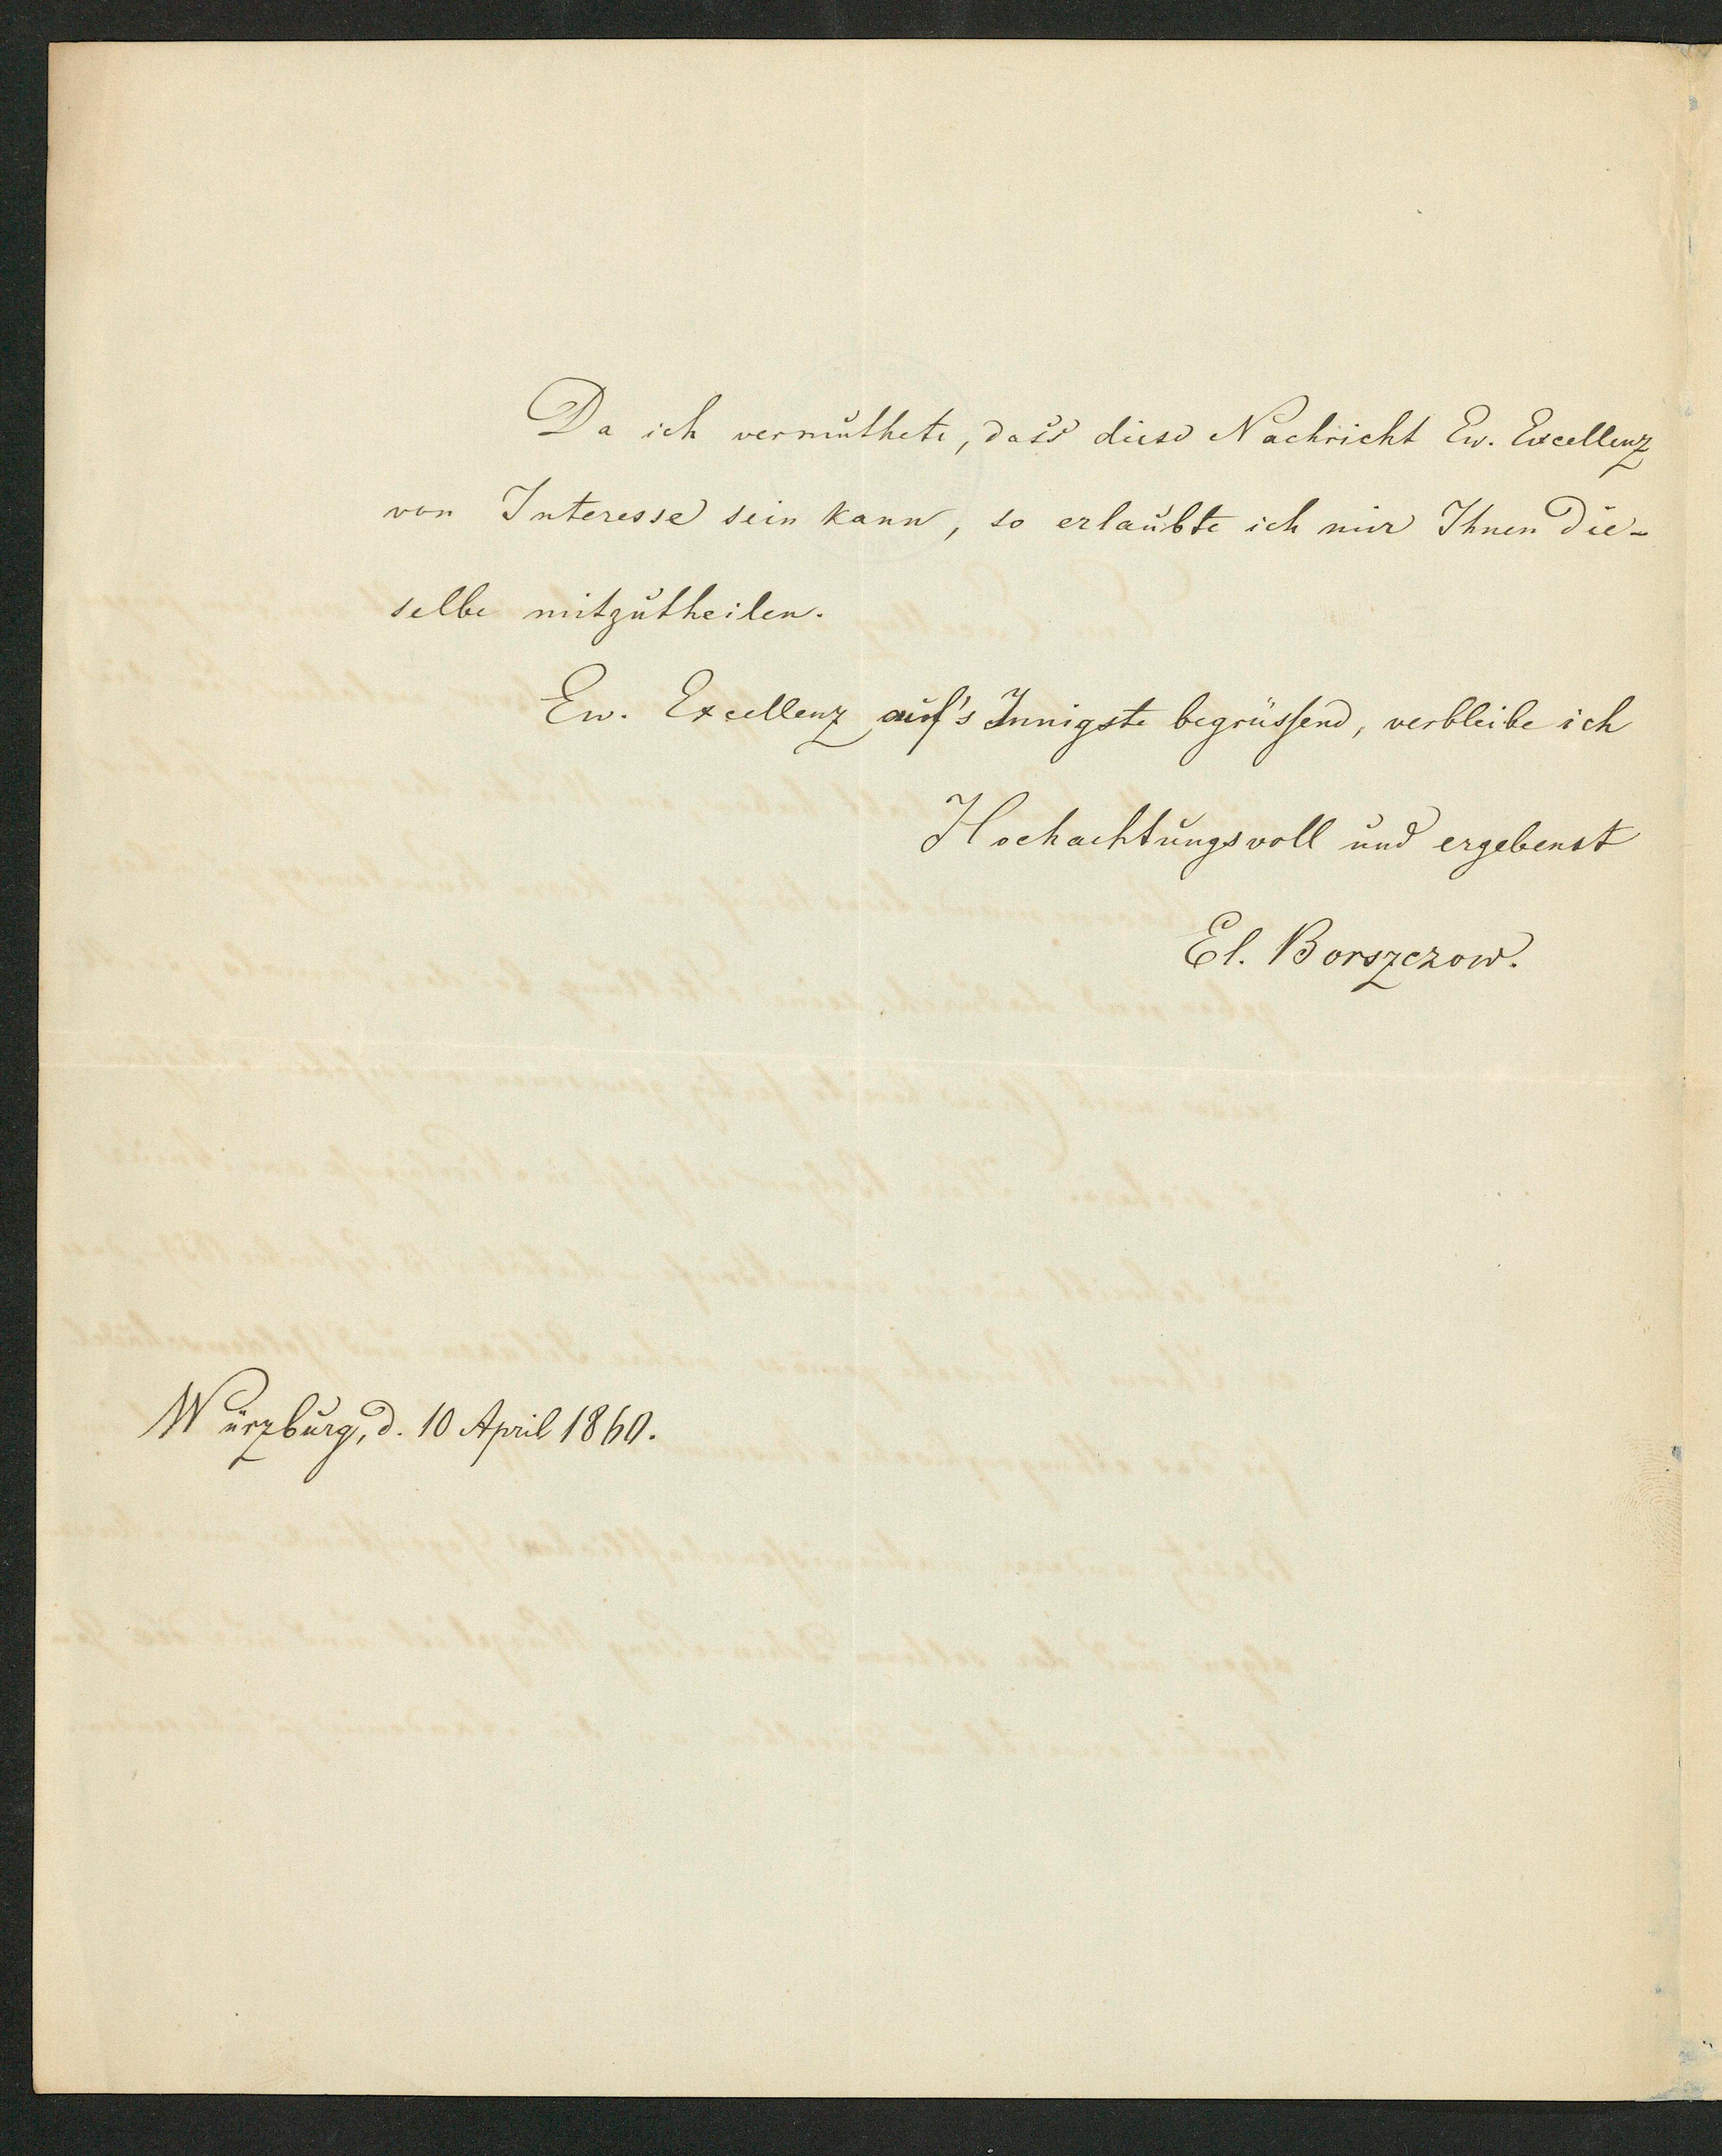 Da ich vermuthete, dass diese Nachricht Ew. Excellenz
von Interesse sein kann, so erlaubte ich mir Ihnen die-
selbe mitzutheilen.
Ew. Excellenz auf's Innigste begrüssend, verbleibe ich
Hochachtungsvoll und ergebenst
El. Borszczow.
Würzburg, d. 10 April 1860.